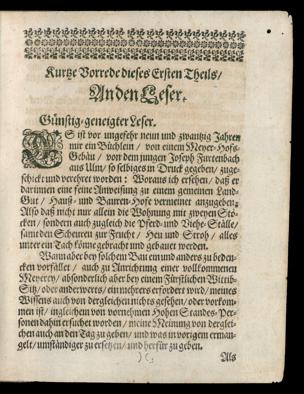 Kurtze Vorrede dieses Ersten Theils/
An den Leser.
Günstig-geneigter Leser.
ES ist vor ungefehr neun und zwantzig Jahren
mir ein Büchlein / von einem Meyer-Hofs-
Gebäu / von dem jungen Joseph Furttenbach
aus Ulm/ so selbiges in Druck gegeben/ zuge-
schickt und verehret worden: Woraus ich ersehen/ daß er
darinnen eine feine Anweisung zu einem gemeinen Land-
Gut / Hauß- und Bauren-Hofe vermeinet anzugeben:
Also daß nicht nur allein die Wohnung mit zweyen Stö-
cken / sondern auch zugleich die Pferd- und Viehe-Ställe/
samt den Scheuren zur Frucht / Heu und Stroh / alles
unter ein Tach könne gebracht und gebauet werden.
Wann aber bey solchem Bau ein und anders zu beden-
cken vorfället / auch zu Anrichtung einer vollkommenen
Meyerey/ absonderlich aber bey einem Fürstlichen Wittib-
Sitz/ oder anderwerts/ ein mehrers erfordert wird/ meines
Wissens auch von dergleichen nichts gesehen/ oder vorkom-
men ist/ ingleichen von vornehmen Hohen Standes-Per-
sonen dahin ersuchet worden / meine Meinung von derglei-
chen auch an den Tag zu geben/ und was in vorigem erman-
gelt/ umständiger zu ersetzen/ und herfür zu geben.
)(
Als